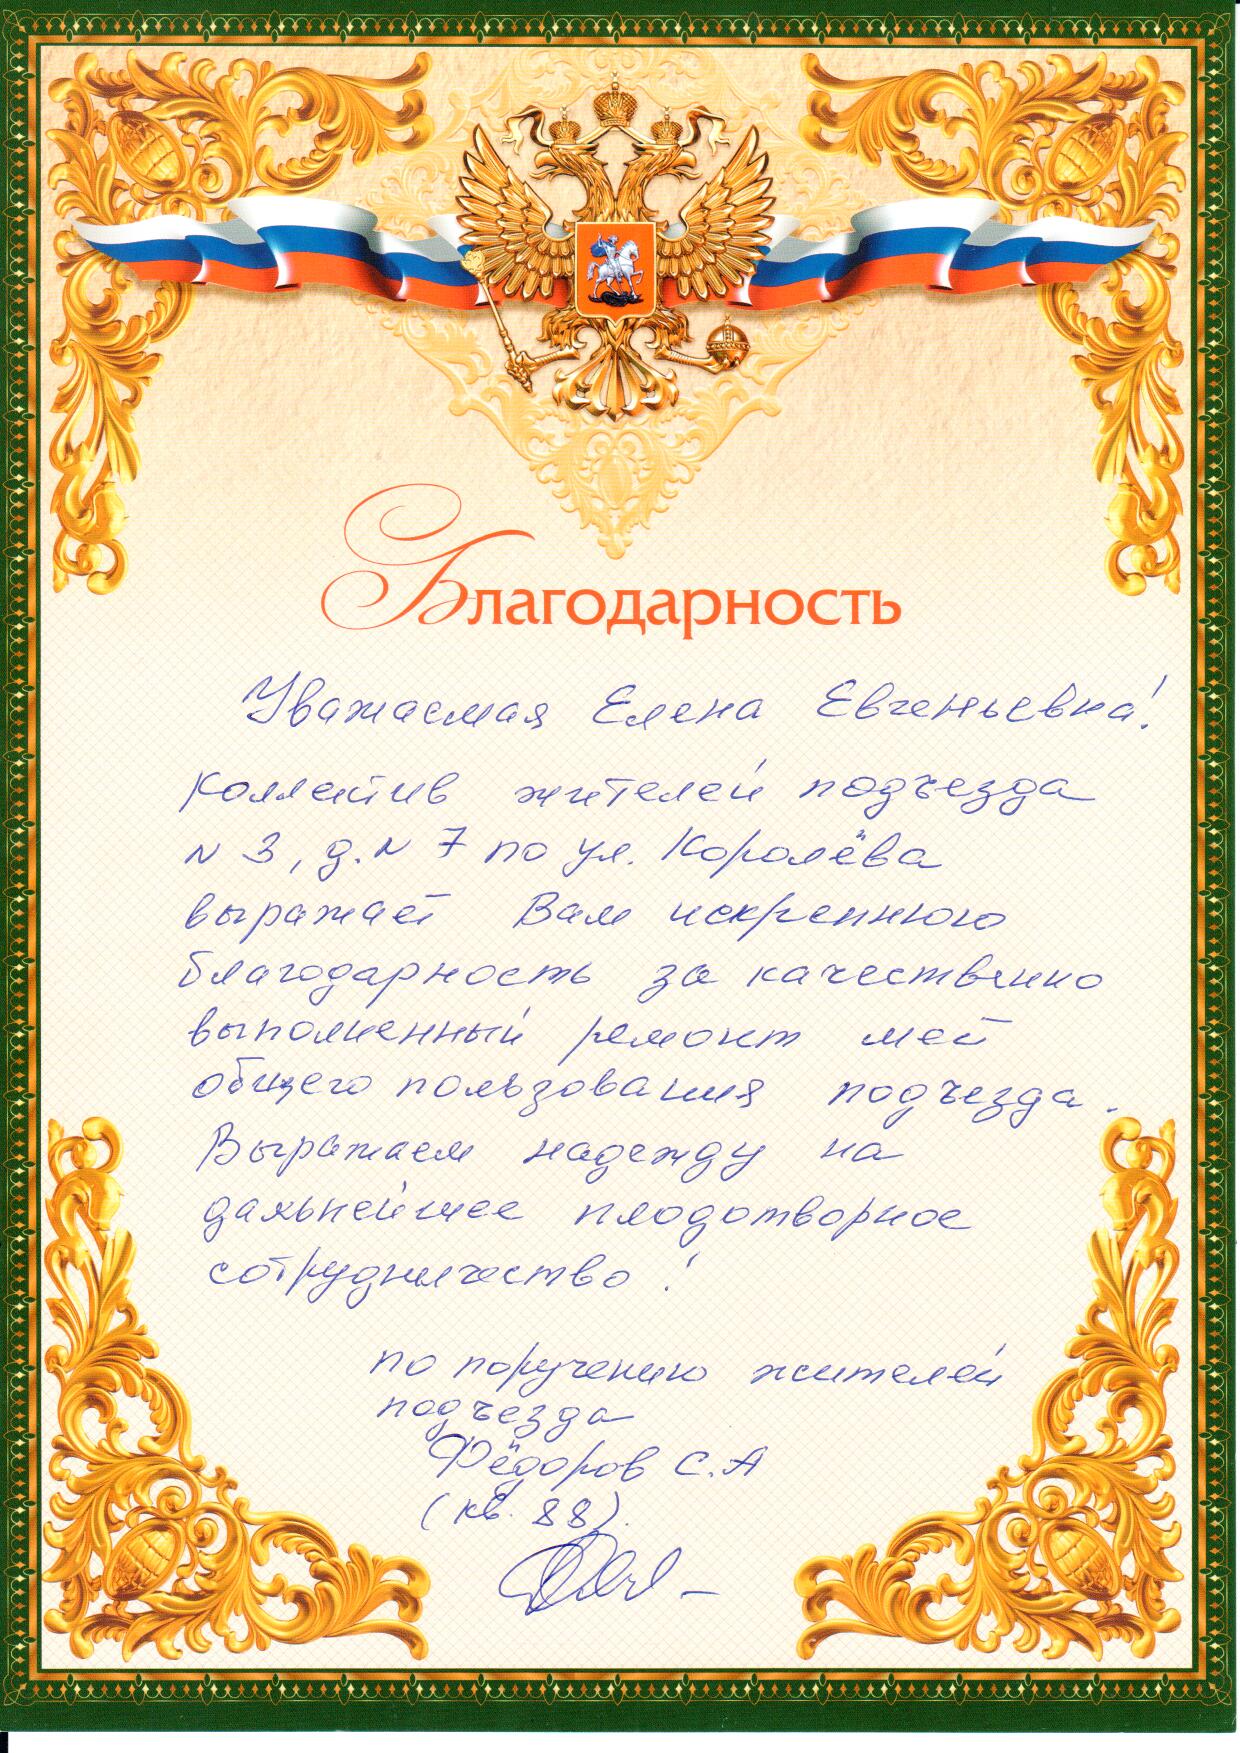 Благодарность
Уважаемая Елена Евгеньевна!
Коллектив жителей подъезда
N 3, д. N 7 по ул. Королёва
выражает Вам искреннюю
благодарность за качественно
выполненный ремонт мест
общего пользования подъезда.
Выражаем надежду на
дальнейшее плодотворное
сотрудничество!
по поручению жителей
подъезда
Фёдоров С.А
(кв. 88).